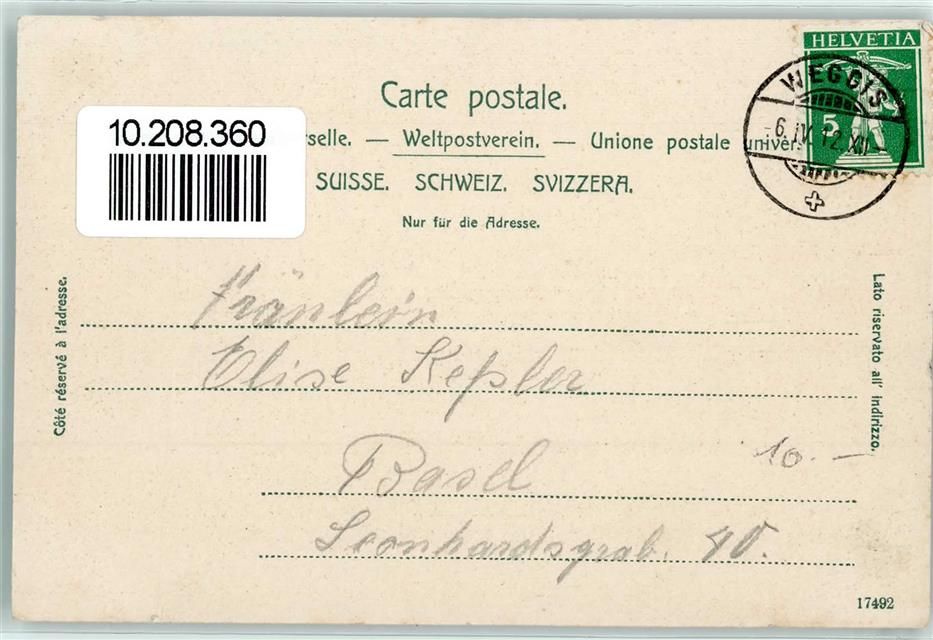 HELVETIA
5
WEGGIS
6.IV.12.XII
Carte postale.
10.208.360
rselle. — Weltpostverein. — Unione postale univer
SUISSE. SCHWEIZ. SVIZZERA.
Nur für die Adresse.
Côté réservé à l'adresse.
Lato riservato all' indirizzo.
Fräulein
Elise Keßler
Basel
10.—
Leonhardsgrab. 40.
17492